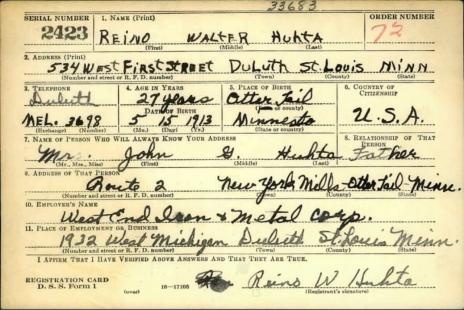 33683
SERIAL NUMBER 1. NAME (Print) ORDER NUMBER
2423 REINO WALTER HUHTA 72
(First) (Middle) (Last)
2. ADDRESS (Print)
534 WEST FIRST STREET DULUTH ST. LOUIS MINN
(Number and street or R. F. D. number) (Town) (County) (State)
3. TELEPHONE 4. AGE IN YEARS 5. PLACE OF BIRTH 6. COUNTRY OF CITIZENSHIP
Duluth 27 years Otter Tail
DATE OF BIRTH
MEL. 3698 5 15 1913 Minnesota U.S.A.
(Exchange) (Number) (Mo.) (Day) (Yr.)
7. NAME OF PERSON WHO WILL ALWAYS KNOW YOUR ADDRESS 8. RELATIONSHIP OF THAT PERSON
Mr. John G Huhta Father
(Mr., Mrs., Miss) (First) (Middle) (Last)
9. ADDRESS OF THAT PERSON
Route 2 New York Mills Otter Tail Minn.
(Number and street or R. F. D. number) (Town) (County) (State)
10. EMPLOYER'S NAME
West End Iron & Metal Corp.
11. PLACE OF EMPLOYMENT OR BUSINESS
1932 West Michigan Duluth St. Louis Minn.
(Number and street or R. F. D. number) (Town) (County) (State)
I AFFIRM THAT I HAVE VERIFIED ABOVE ANSWERS AND THAT THEY ARE TRUE.
REGISTRATION CARD
D. S. S. Form 1 (over) 16-17105 Reino W Huhta
(Registrant's signature)